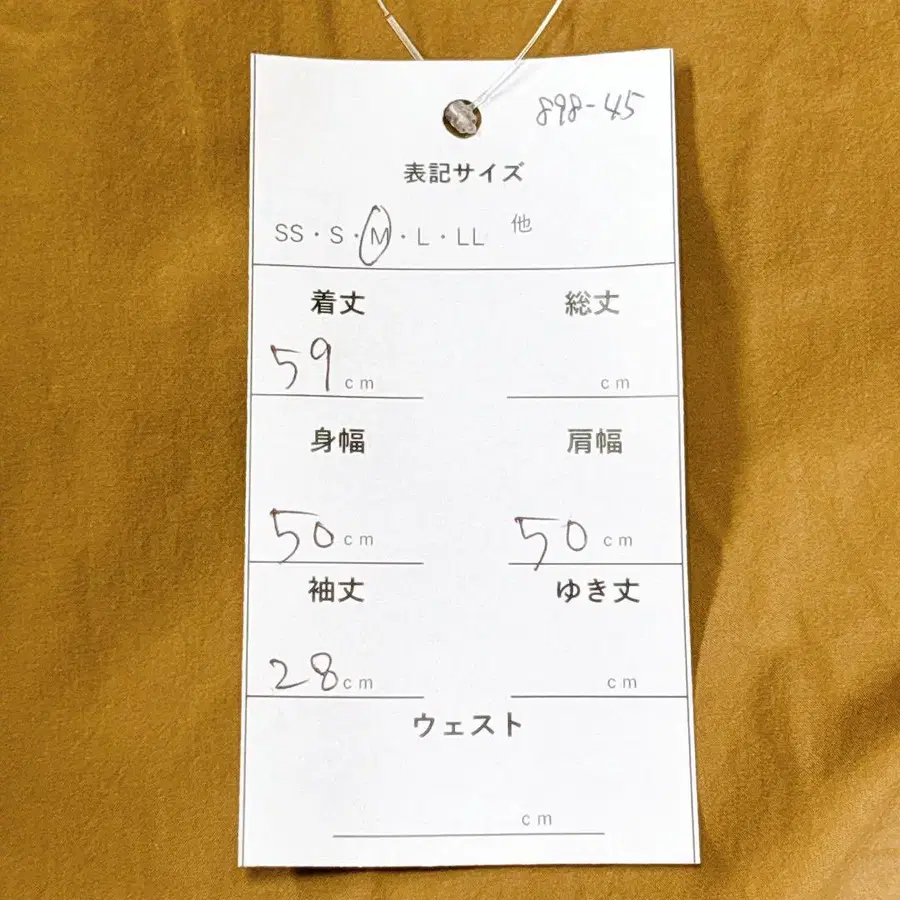 898-45
表記サイズ
SS・S・M・L・LL 他
着丈 総丈
59cm cm
身幅 肩幅
50cm 50cm
袖丈 ゆき丈
28cm cm
ウェスト
cm